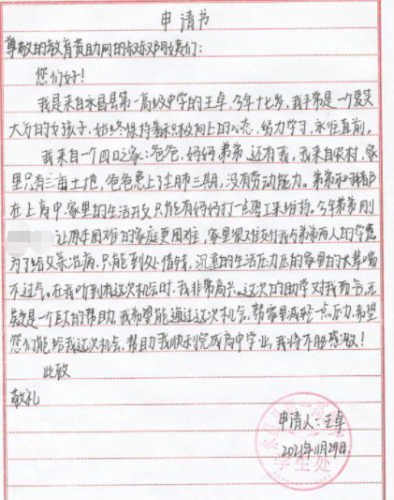 申请书
尊敬的教育资助网的叔叔阿姨们:
您们好!
我是来自永昌县第一高级中学的王卓,今年十七岁,我平常是一个爱笑
大方的女孩子,始终保持着积极向上的心态,努力学习,永往直前。
我来自一个四口之家:爸爸,妈妈,弟弟,还有我,我来自农村,家
里只有三亩土地,爸爸患上了尘肺三期,没有劳动能力。弟弟和我都
在上高中,家里的生活开支只能有妈妈打一点零工来维持。今年弟弟刚
让原本困难的家庭更困难,家里很难支付我与弟弟两人的学费
为了给父亲治病,只能到处借钱,沉重的生活压力压的家里的大梁喘
不过气。在我听到有这次机会时,我非常高兴。这次的助学对我而言,无
疑是一个巨大的帮助,我希望能通过这次机会,帮家里减轻一点压力,希望
您们能给我这次机会,帮助我顺利完成高中学业,我将不胜感激!
此致
敬礼
申请人:王卓
2021年11月29日.
学生处